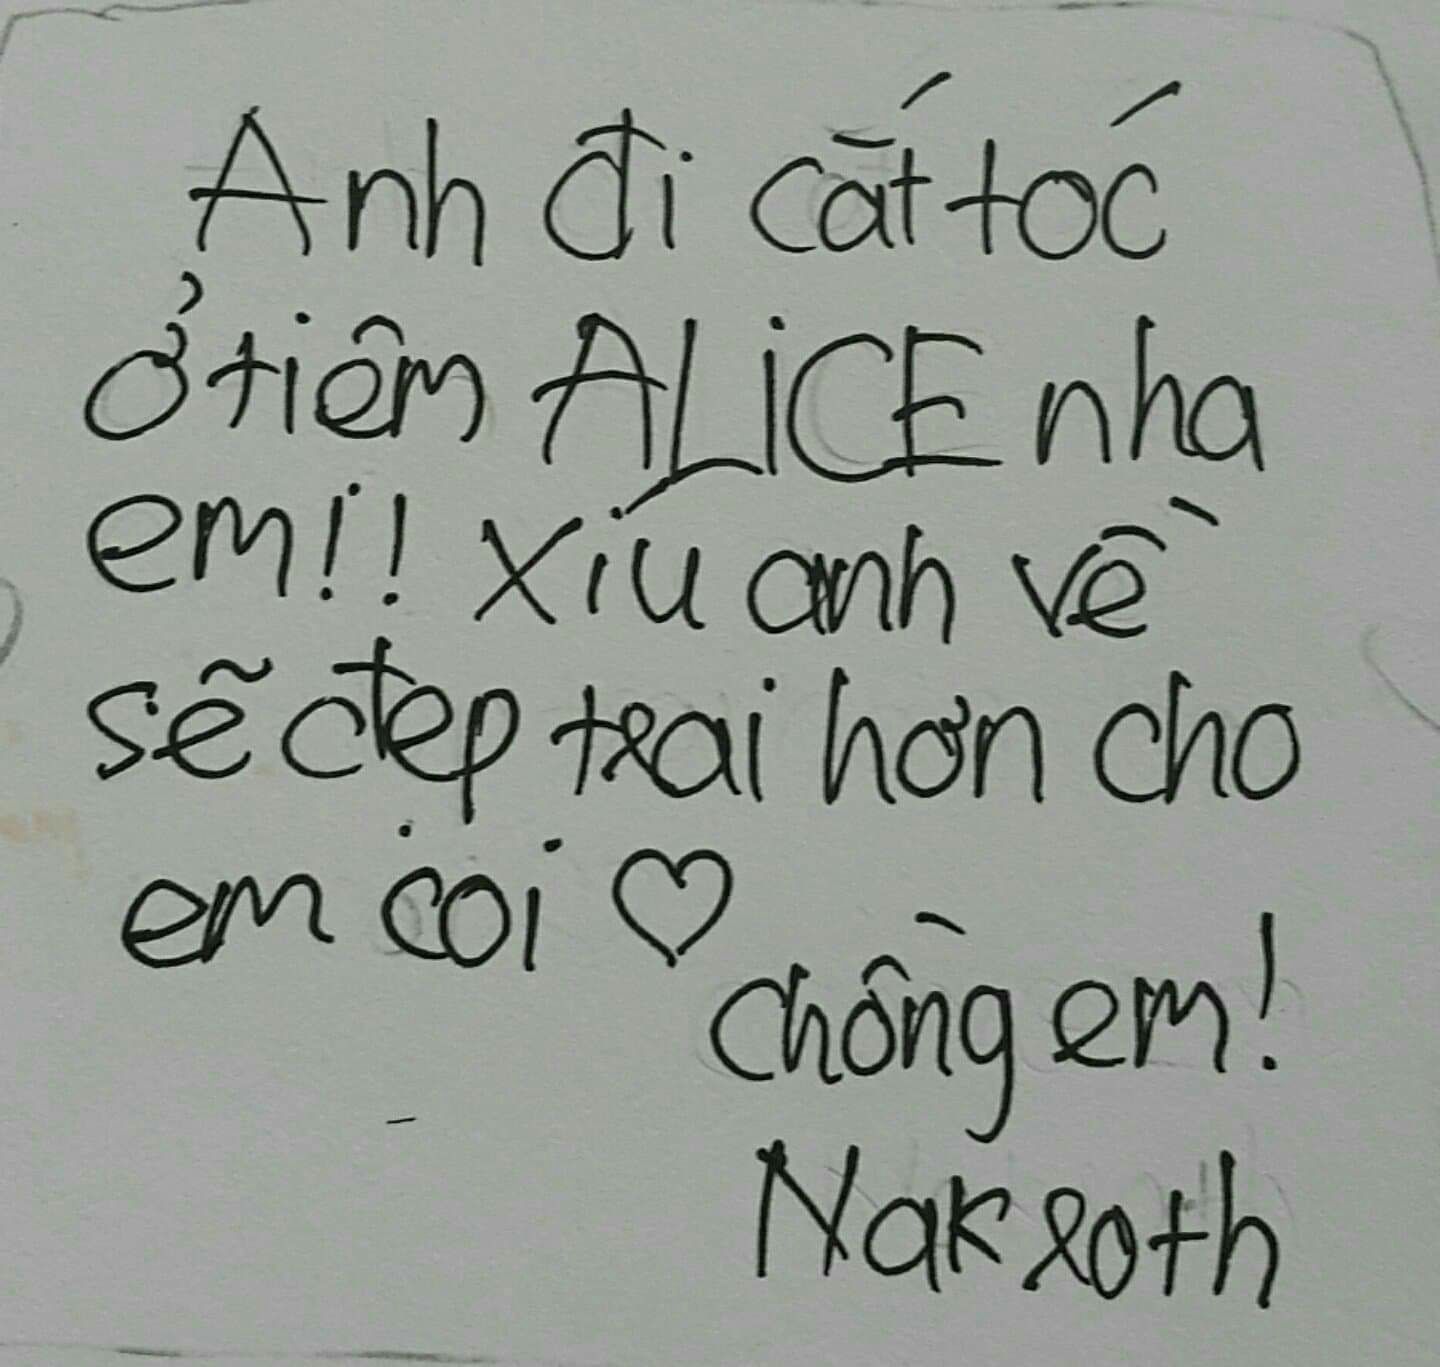 Anh đi cắt tóc
ở tiêm ALiCE nha
em!! Xíu anh về
sẽ đẹp trai hơn cho
em coi ♡
chồng em!
Nakroth